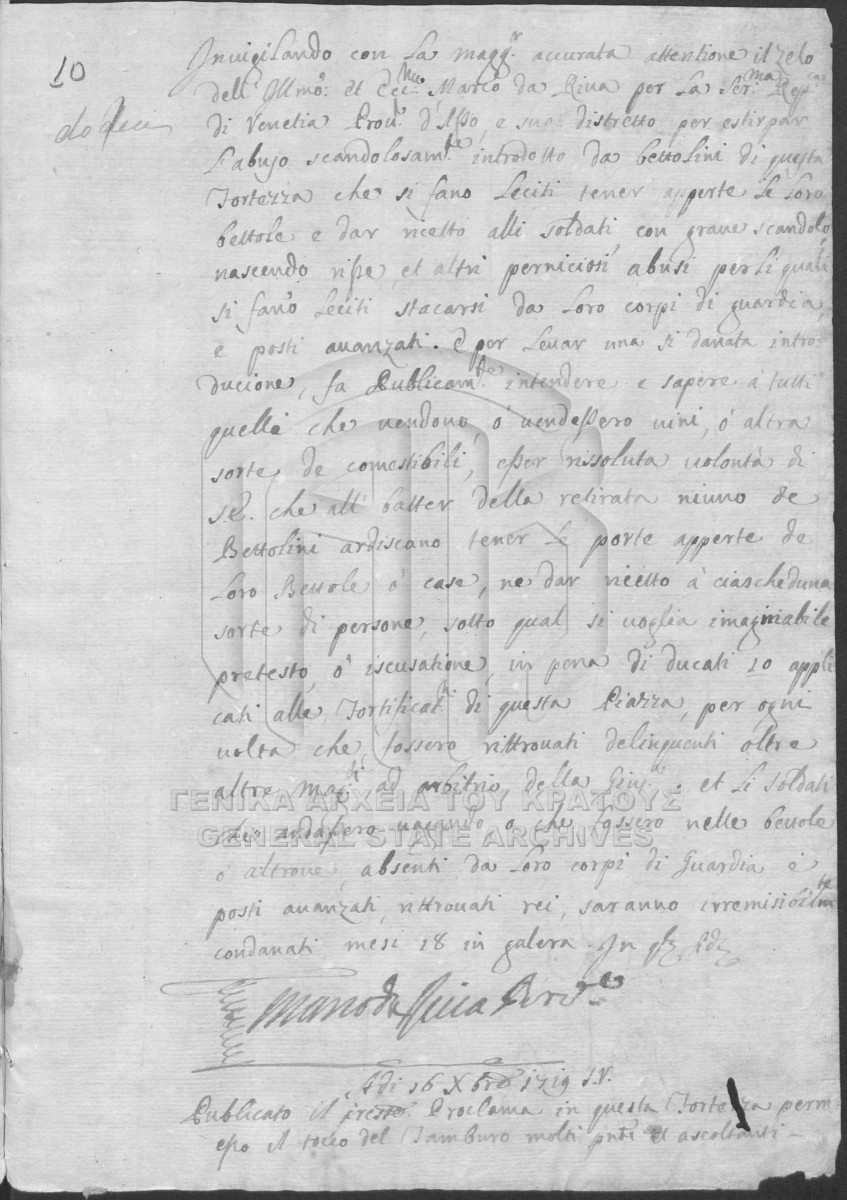 10
dodeci
Invigilando con la magg.r accurata attentione il zelo
dell' Illmo: et Ecc:mo Marco da Riva per la Ser:ma Rep:ca
di Venetia Prov:r d'Asso, e suo distretto per estirpar
l'abuso scandolosam:te introdotto da bettolini di questa
Fortezza che si fano leciti tener apperte le loro
bettole e dar ricetto alli soldati, con grave scandolo,
nascendo risse, et altri perniciosi abusi per li quali
si fano leciti stacarsi da loro corpi di guardia,
e posti avanzati. E per levar una si danata intro
ducione, fa Publicam:te intendere e sapere à tutti
quelli che vendono, ò vendessero vini, ò altra
sorte de comestibili, esser rissoluta volontà di
S.E. che all' batter della retirata niuno de
Bettolini ardiscano tener le porte apperte de
loro Bettole ò case, ne dar ricetto à ciascheduna
sorte di persone, sotto qual si voglia imaginabile
pretesto, ò iscusatione, in pena di ducati 10 appli
cati alle Fortificat:ni di questa Piazza, per ogni
volta che fossero rittrovati delinquenti oltre
altre mag:ri ad arbitrio della Giust:a. et li soldati
che andassero vagando o che fossero nelle bettole,
ò altrove, absenti da loro corpi di Guardia e
posti avanzati, rittrovati rei, saranno irremisibilm:te
condanati mesi 18 in galera. In
Marco da Riva Prov:r
Adi 16 Xbre 1719 S.V.
Publicato il presste Proclama in questa Fortezza perm
esso il tocco del Tamburo molti pnti et ascoltanti -
ΓΕΝΙΚΑ ΑΡΧΕΙΑ ΤΟΥ ΚΡΑΤΟΥΣ
GENERAL STATE ARCHIVES